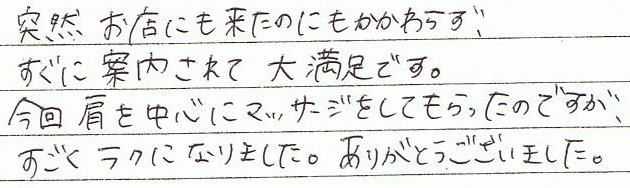 突然 お店にも来たのにもかかわらず、
すぐに案内されて 大満足です。
今回 肩を中心にマッサージをしてもらったのですが、
すごく ラクに なりました。ありがとうございました。